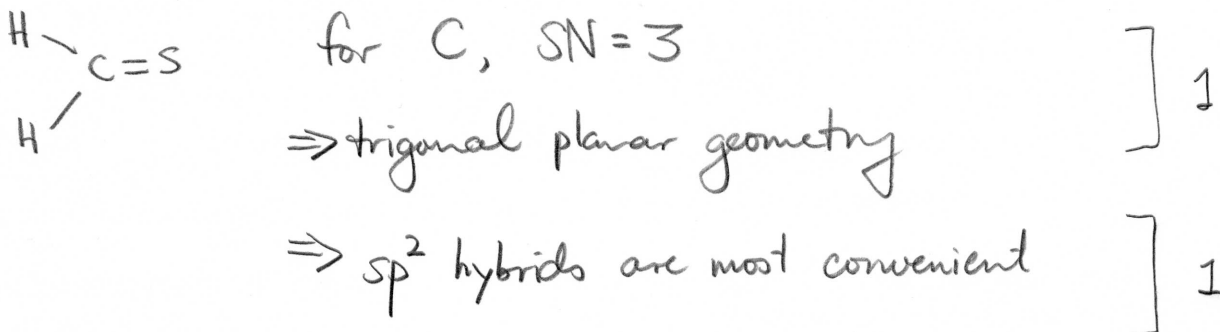 H
C=S
H
for C, SN=3
⇒ trigonal planar geometry
1
⇒ sp² hybrids are most convenient
1